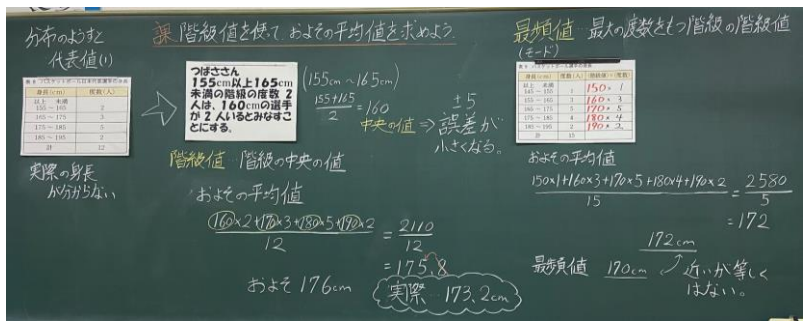 分布のようすと
代表値(1)
表8 バスケットボール日本代表選手の身長
身長(cm) 度数(人)
以上 未満
155 ~ 165 2
165 ~ 175 3
175 ~ 185 5
185 ~ 195 2
計 12
実際の身長
が分からない
課 階級値を使って、およその平均値を求めよう。
つばささん
155cm以上165cm
未満の階級の度数2
人は、160cmの選手
が2人いるとみなすこ
とにする。
(155cm~165cm)
155+165
2
=160
中央の値
⇒
±5
誤差が
小さくなる。
階級値…階級の中央の値
およその平均値
160×2+170×3+180×5+190×2
12
= 2110
12
=175.8
およそ176cm
実際…173.2cm
最頻値…最大の度数をもつ階級の階級値
(モード)
身長(cm) 度数(人) (階級値)×(度数)
以上 未満
145 ~ 155 1 150×1
155 ~ 165 3 160×3
165 ~ 175 5 170×5
175 ~ 185 4 180×4
185 ~ 195 2 190×2
計 15
およその平均値
150×1+160×3+170×5+180×4+190×2
15
= 2580
5
=172
172cm
最頻値 170cm
近いが等しく
はない。